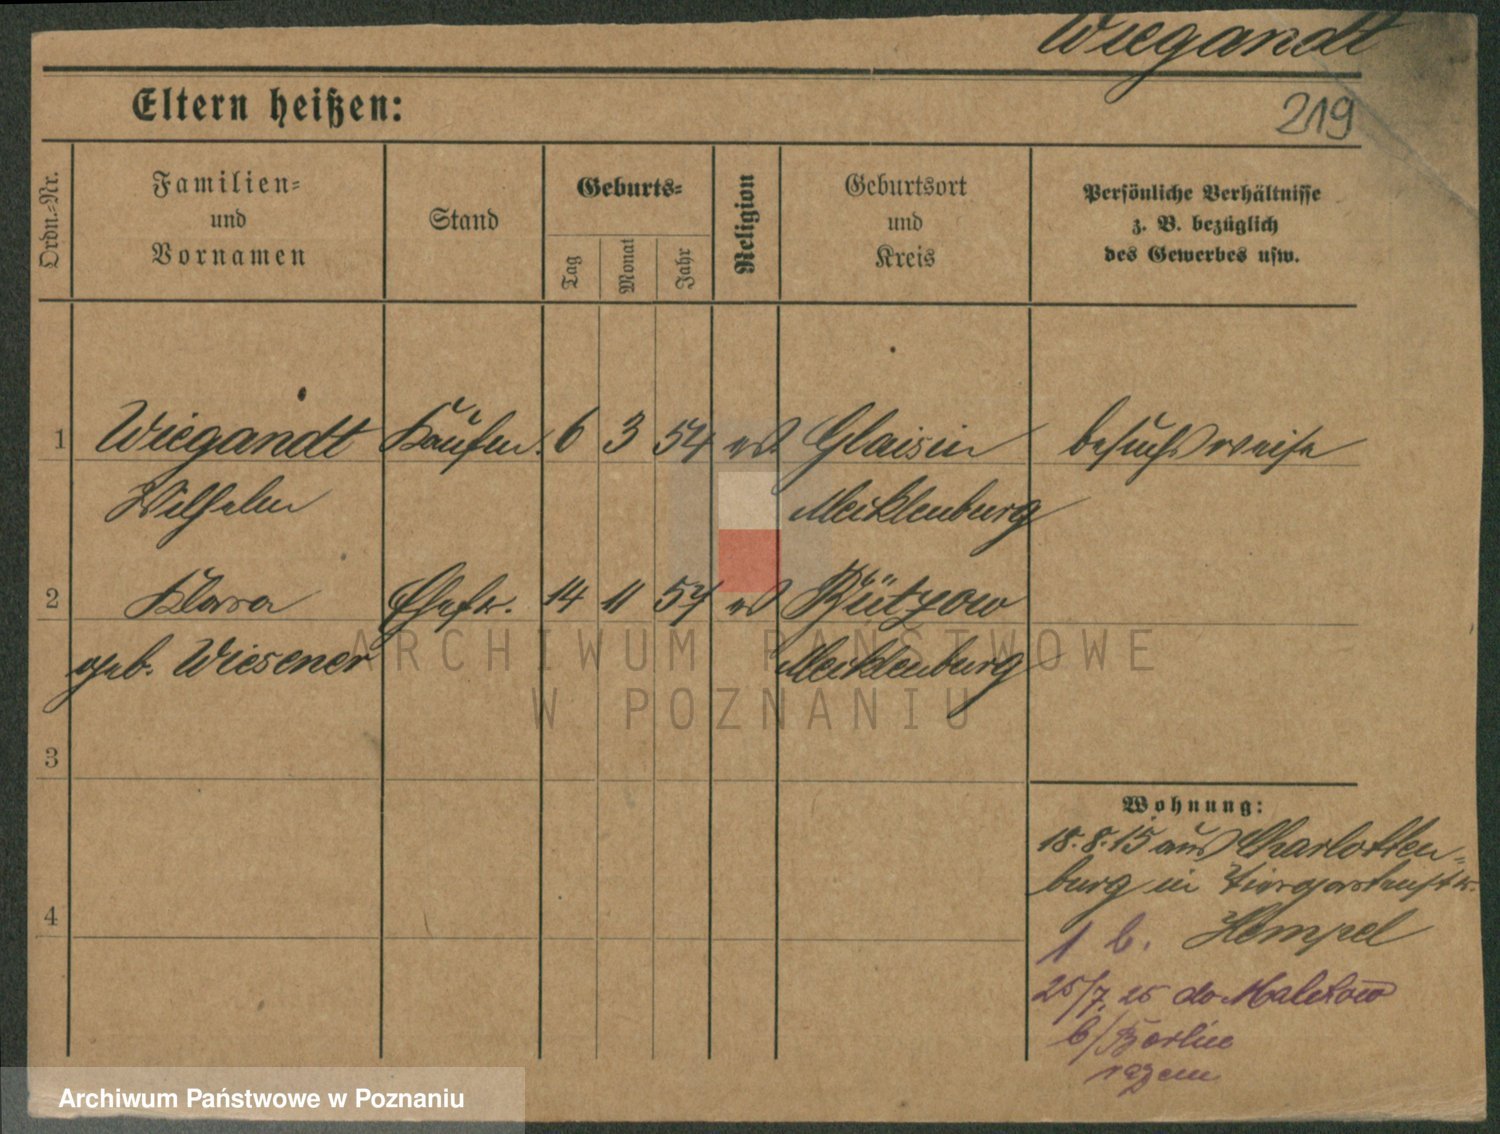 Wiegandt
Eltern heißen:
219
Ordn.-Nr.
Familien-
und
Vornamen
Stand
Geburts-
Tag
Monat
Jahr
Religion
Geburtsort
und
Kreis
Persönliche Verhältnisse
z. B. bezüglich
des Gewerbes usw.
1 Wiegandt Kaufm. 6 3 54 ev Glaisin besuchsweise
Wilhelm Mecklenburg
2 Klara Ehefr. 14 11 57 ev Bützow
geb. Wiesener Mecklenburg
3
4
Wohnung:
18.8.15 aus Charlotten-
burg in Tiergartenstr.
1 b. Hempel
25/7.25 do
b/Berlin
razem
ARCHIWUM PAŃSTWOWE
W POZNANIU
Archiwum Państwowe w Poznaniu